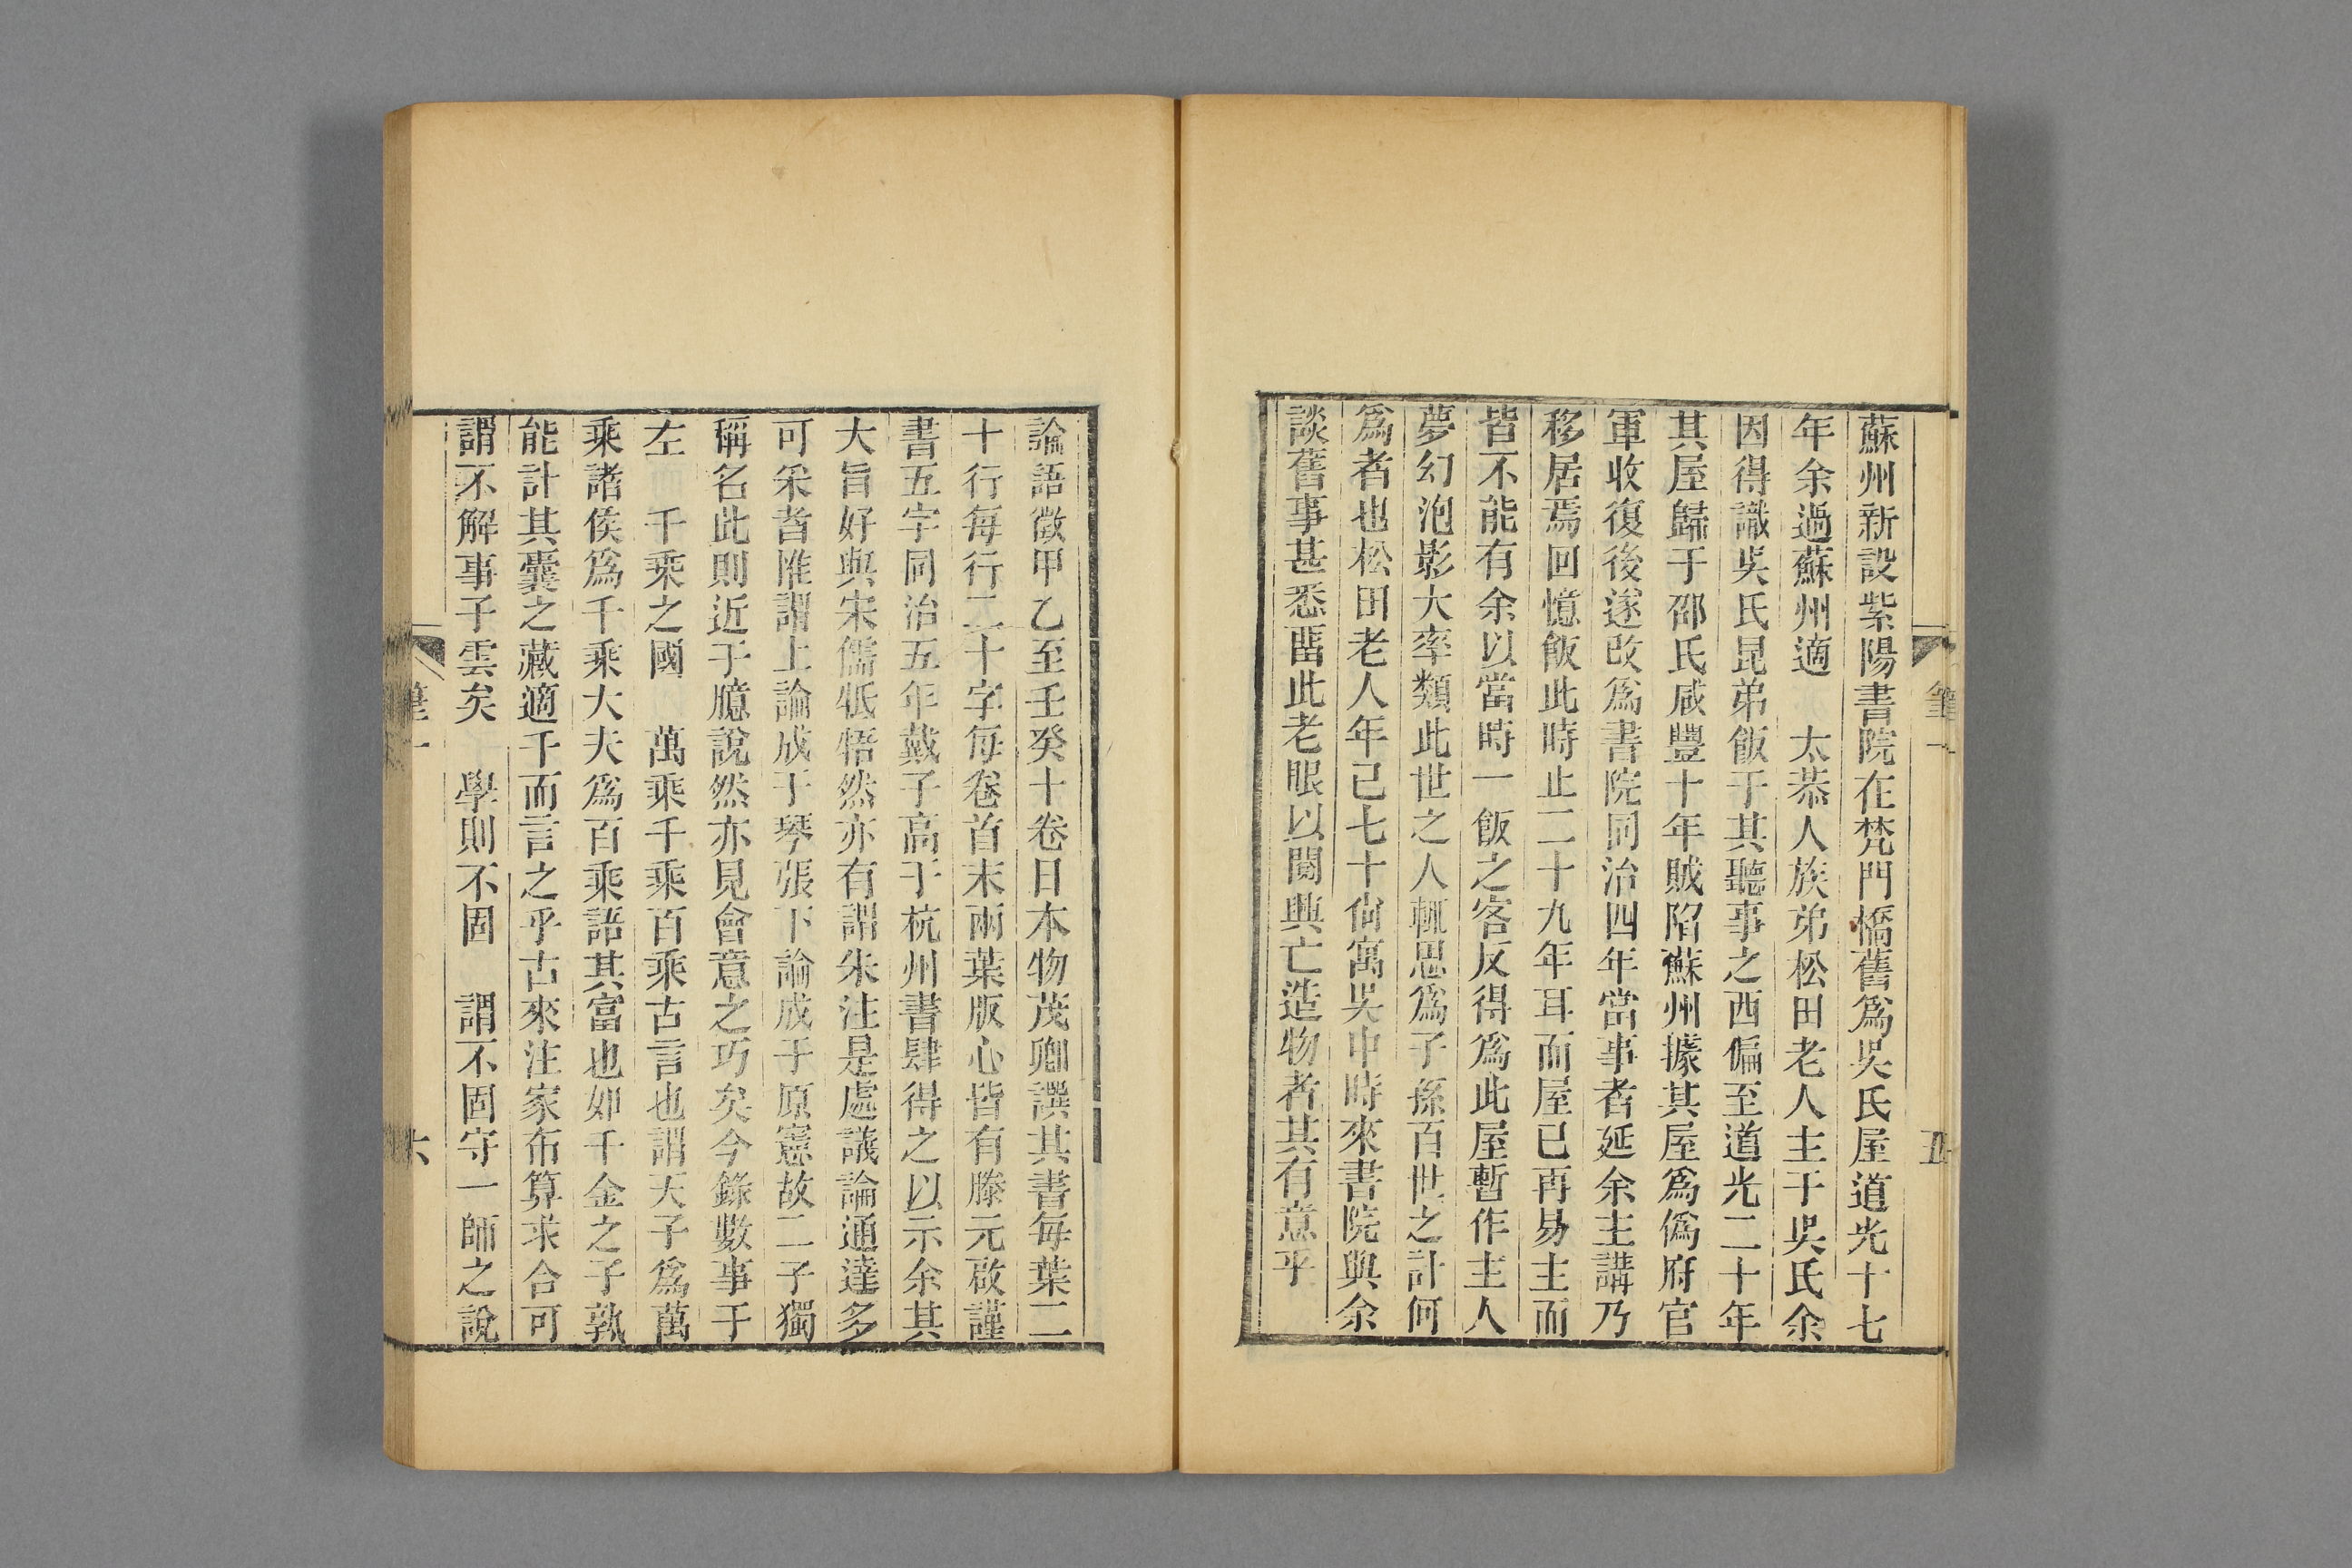 蘇州新設紫陽書院在梵門橋舊爲吳氏屋道光十七
年余過蘇州適　太恭人族弟松田老人主于吳氏余
因得識吳氏昆弟飯于其聽事之西偏至道光二十年
其屋歸于邵氏咸豐十年賊陷蘇州據其屋爲僞府官
軍收復後遂改爲書院同治四年當事者延余主講乃
移居焉回憶飯此時止二十九年耳而屋已再易主而
皆不能有余以當時一飯之客反得爲此屋暫作主人
夢幻泡影大率類此世之人輒思爲子孫百世之計何
爲者也松田老人年已七十尙寓吳中時來書院與余
談舊事甚悉畱此老眼以閱興亡造物者其有意乎
筆一
五
論語徵甲乙至壬癸十卷日本物茂卿譔其書每葉二
十行每行二十字每卷首末兩葉版心皆有滕元啟謹
書五字同治五年戴子高于杭州書肆得之以示余其
大旨好與宋儒牴牾然亦有謂朱注是處議論通達多
可采者惟謂上論成于琴張下論成于原憲故二子獨
稱名此則近于臆說然亦見會意之巧矣今錄數事于
左　千乘之國　萬乘千乘百乘古言也謂天子爲萬
乘諸侯爲千乘大夫爲百乘語其富也如千金之子孰
能計其囊之藏適千而言之乎古來注家布算求合可
謂不解事子雲矣　學則不固　謂不固守一師之說
筆一
六